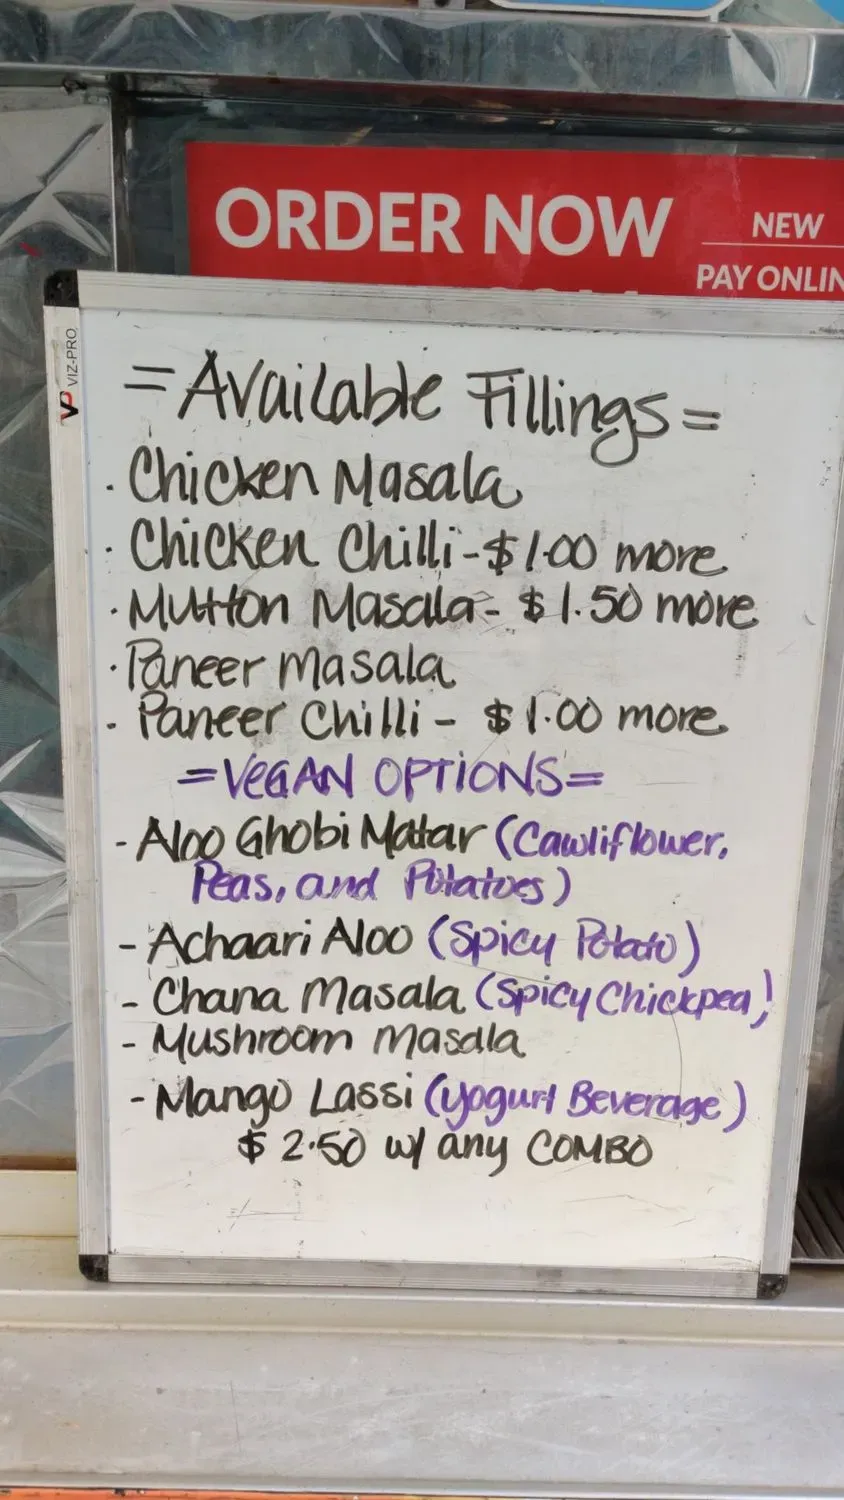 ORDER NOW
NEW
PAY ONLIN
VP VIZ-PRO
=Available Fillings=
· Chicken Masala
· Chicken Chilli - $1.00 more
· Mutton Masala - $1.50 more
· Paneer Masala
- Paneer Chilli - $1.00 more
=VEGAN OPTIONS=
- Aloo Ghobi Matar (Cawliflower,
Peas, and Potatoes)
- Achaari Aloo (Spicy Potato)
- Chana Masala (Spicy Chickpea)
- Mushroom Masala
- Mango Lassi (Yogurt Beverage)
$2.50 w/ any COMBO